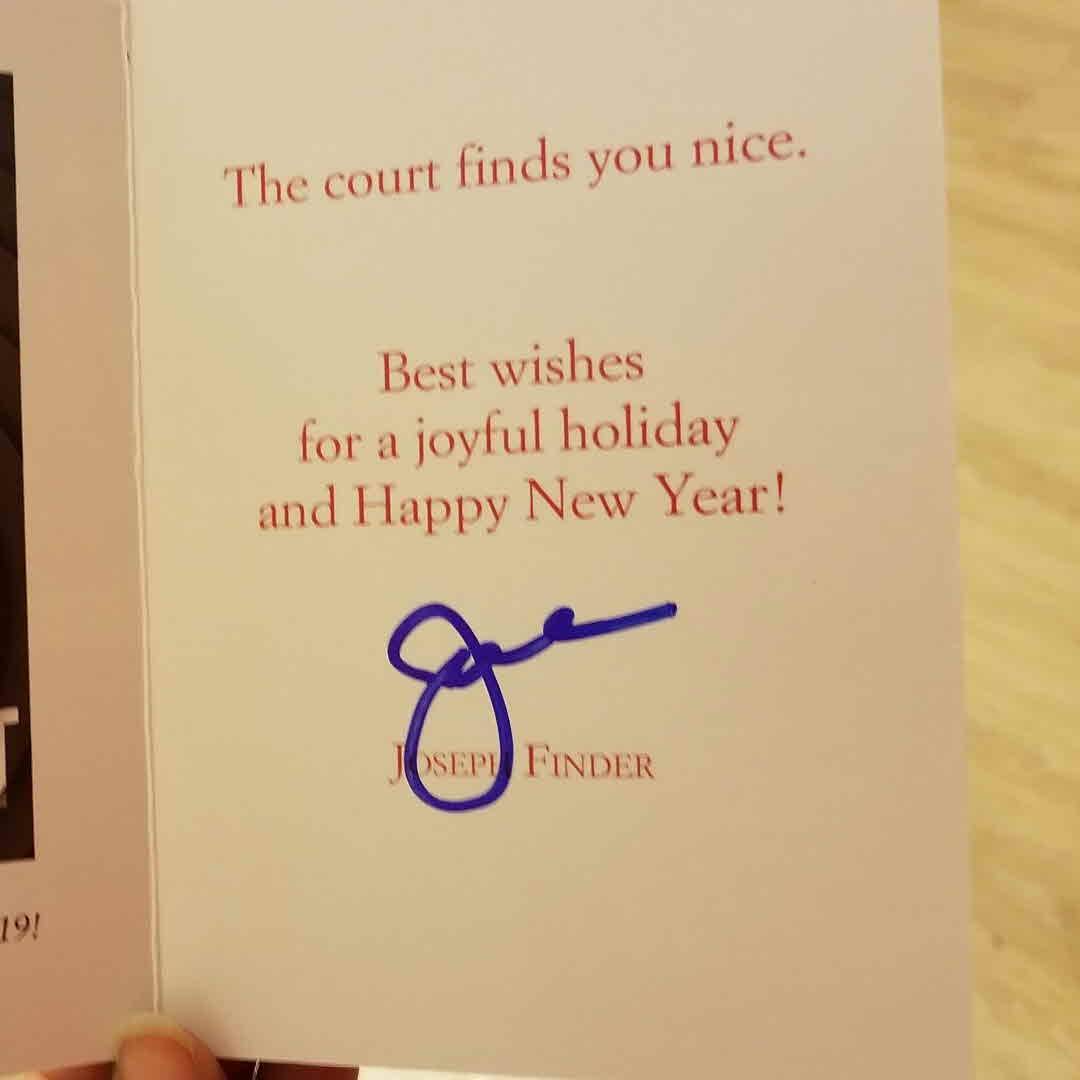 The court finds you nice.
Best wishes
for a joyful holiday
and Happy New Year!
Joe
JOSEPH FINDER
19!